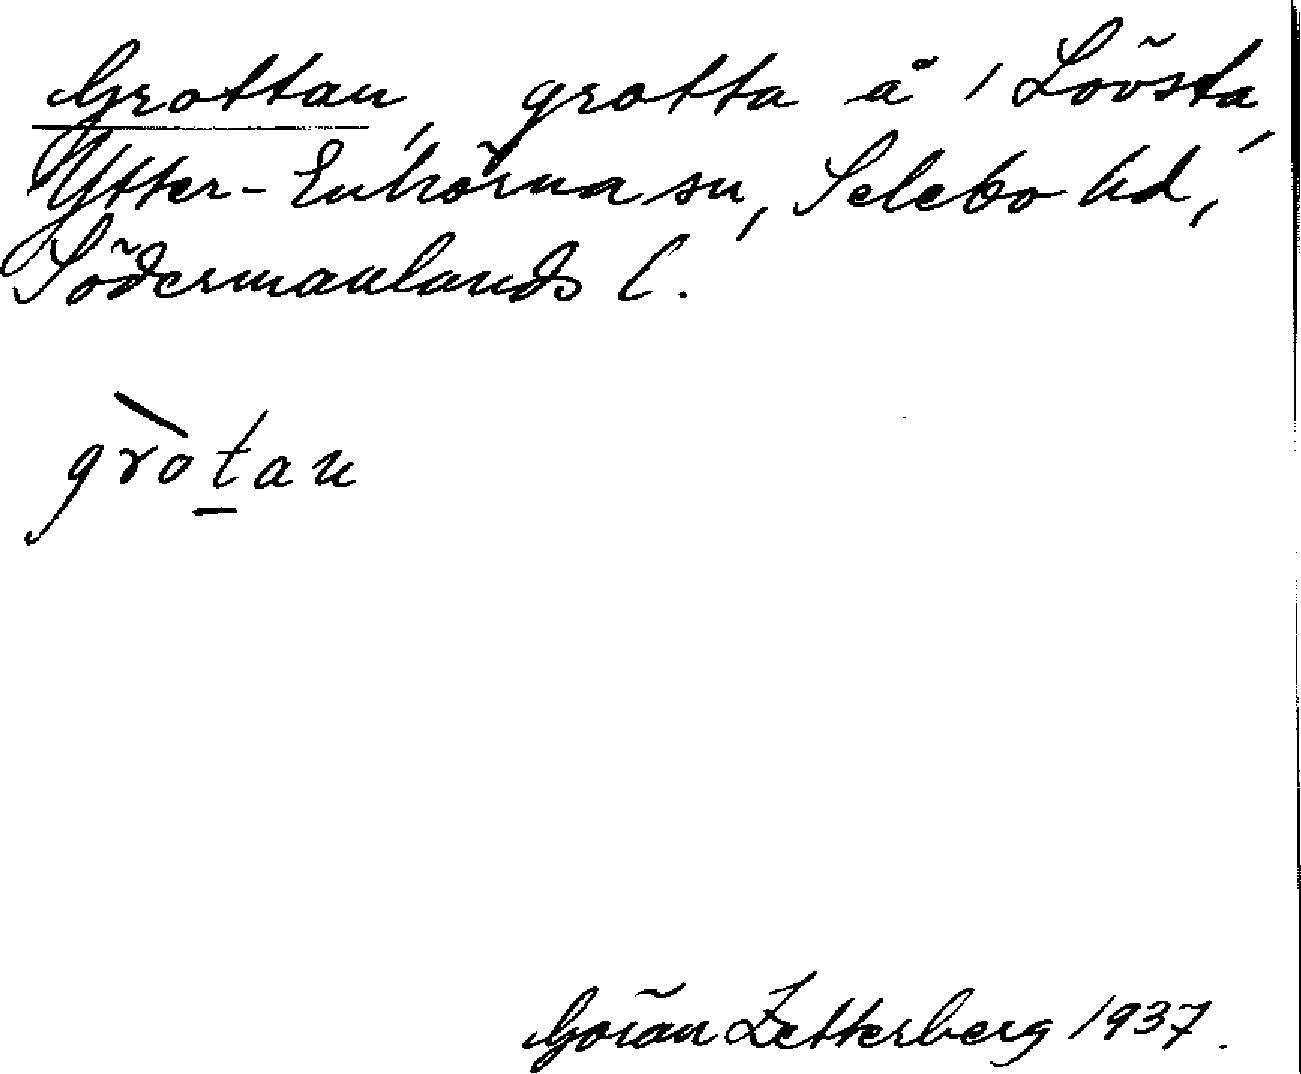 Grottan, grotta å 1 Lövsta,
Ytter-Enhörna sn, Selebo hd,
Södermanlands l.
gròtan
Göran Zetterberg 1937.